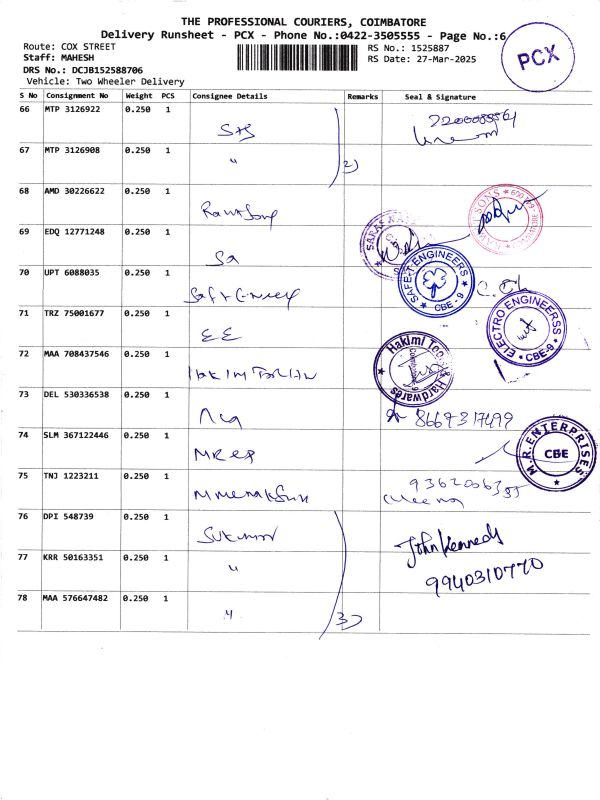 THE PROFESSIONAL COURIERS, COIMBATORE
Delivery Runsheet - PCX - Phone No.:0422-3505555 - Page No.:6
PCX
Route: COX STREET
Staff: MAHESH
DRS No.: DCJB152588706
Vehicle: Two Wheeler Delivery
RS No.: 1525887
RS Date: 27-Mar-2025
S No Consignment No Weight PCS Consignee Details Remarks Seal & Signature
66 MTP 3126922 0.250 1
67 MTP 3126908 0.250 1 " 2)
68 AMD 30226622 0.250 1
69 EDQ 12771248 0.250 1 Sa
SAFE-T ENGINEERS CBE - 9
70 UPT 6088035 0.250 1
ELECTRO ENGINEERSS CBE-9
71 TRZ 75001677 0.250 1 EE
Hakimi Tools Hardwares
72 MAA 708437546 0.250 1
73 DEL 530336538 0.250 1 8667317499
M.R.ENTERPRISES CBE
74 SLM 367122446 0.250 1
75 TNJ 1223211 0.250 1
76 DPI 548739 0.250 1 Sukumar
John Kennedy
77 KRR 50163351 0.250 1 "
9940310770
78 MAA 576647482 0.250 1 " 3)